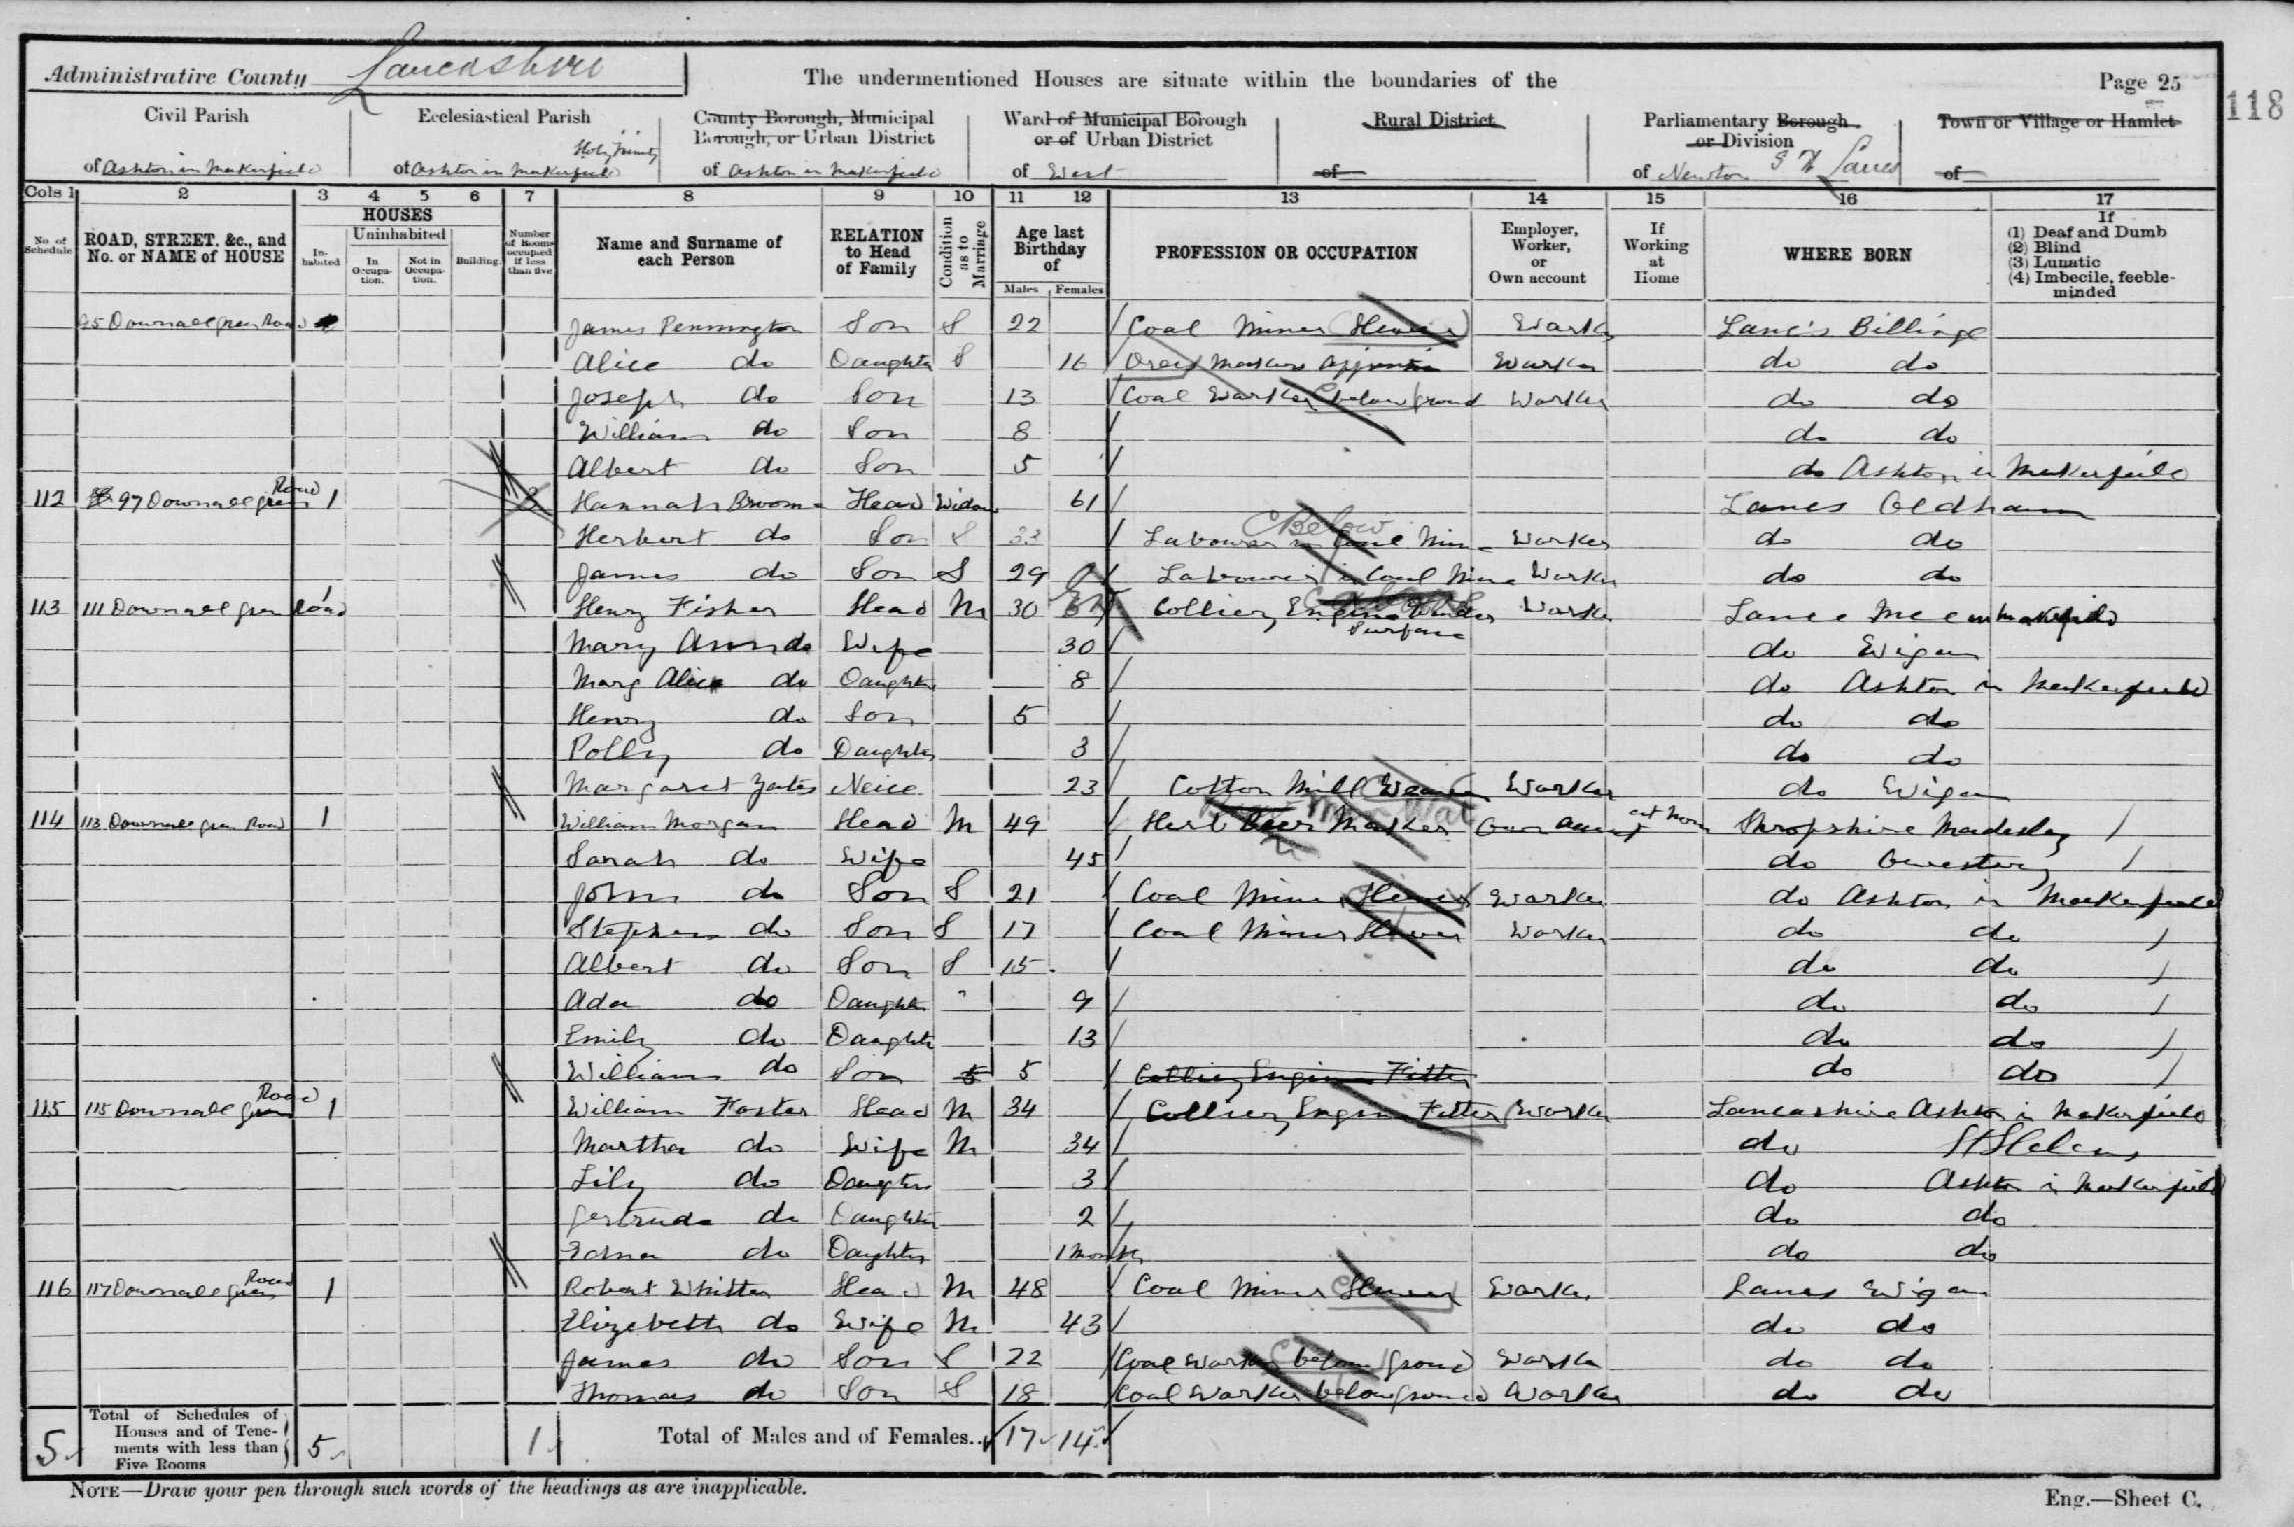 Administrative County Lancashire
The undermentioned Houses are situate within the boundaries of the
Page 25
118
Civil Parish
of Ashton in Makerfield
Ecclesiastical Parish
Holy Trinity
of Ashton in Makerfield
County Borough, Municipal Borough, or Urban District
of Ashton in Makerfield
Ward of Municipal Borough or of Urban District
of West
Rural District
of
Parliamentary Borough or Division
of Newton S W Lancs
Town or Village or Hamlet
of
Cols 1 2 3 4 5 6 7 8 9 10 11 12 13 14 15 16 17
No of Schedule
ROAD, STREET, &c., and No. or NAME of HOUSE
HOUSES
In-habited
Uninhabited
In Occupa-tion.
Not in Occupa-tion.
Building.
Number of Rooms occupied if less than five
Name and Surname of each Person
RELATION to Head of Family
Condition as to Marriage
Age last Birthday of
Males Females
PROFESSION OR OCCUPATION
Employer, Worker, or Own account
If Working at Home
WHERE BORN
If
(1) Deaf and Dumb
(2) Blind
(3) Lunatic
(4) Imbecile, feeble-minded
95 Downall green Road James Pennington Son S 22 Coal Miner Hewer Worker Lancs Billinge
Alice do Daughter S 16 Dress Makers Worker do do
Joseph do Son 13 Coal Worker below ground Worker do do
William do Son 8 do do
Albert do Son 5 do Ashton in Makerfield
112 97 Downall green Road 1 Hannah Broome Head Widow 61 Lancs Oldham
Herbert do Son S 33 Labourer in Coal Mine Below Worker do do
James do Son S 29 Labourer in Coal Mine Worker do do
113 111 Downall green Road 1 Henry Fisher Head M 30 Colliery Engine Winder Surface Worker Lance Ince in Makerfield
Mary Ann do Wife 30 do Wigan
Mary Alice do Daughter 8 do Ashton in Makerfield
Henry do Son 5 do do
Polly do Daughter 3 do do
Margaret Yates Neice 23 Cotton Mill Weaver Worker do Wigan
114 113 Downall green Road 1 William Morgan Head M 49 Herb Beer Maker Own account at home Shropshire Madeley
Sarah do Wife 45 do Oswestry
John do Son S 21 Coal Miner Hewer Worker do Ashton in Makerfield
Stephen do Son S 17 Coal Miner Hewer Worker do do
Albert do Son S 15 do do
Ada do Daughter 9 do do
Emily do Daughter 13 do do
William do Son 5 Colliery Engine Fitter do do
115 115 Downall green Road 1 William Foster Head M 34 Colliery Engine Fitter Worker Lancashire Ashton in Makerfield
Martha do Wife M 34 do St Helens
Lily do Daughter 3 do Ashton in Makerfield
Gertrude do Daughter 2 do do
Edna do Daughter 1 Month do do
116 117 Downall green Road 1 Robert Whitter Head M 48 Coal Miner Hewer Worker Lancs Wigan
Elizebeth do Wife M 43 do do
James do Son S 22 Coal Worker below ground Worker do do
Thomas do Son S 18 Coal Worker below ground Worker do do
5 Total of Schedules of Houses and of Tene-ments with less than Five Rooms 5 1 Total of Males and of Females... 17 14
NOTE—Draw your pen through such words of the headings as are inapplicable.
Eng.—Sheet C.